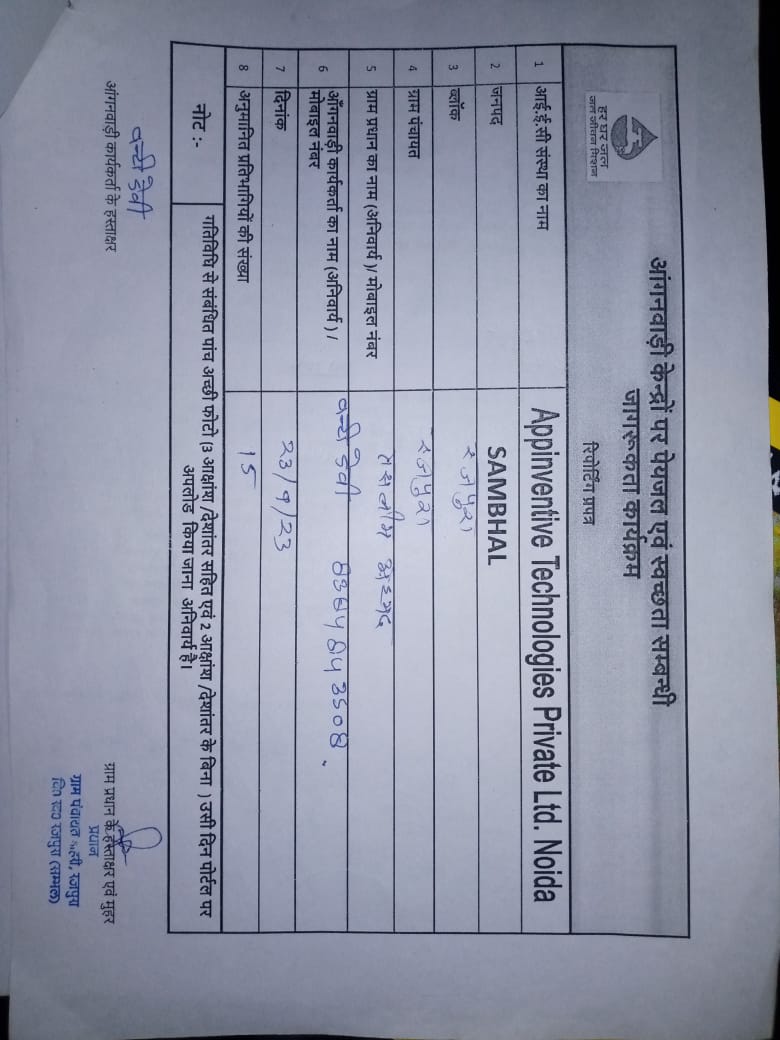 हर घर जल
जल जीवन मिशन
आंगनवाड़ी केन्द्रों पर पेयजल एवं स्वच्छता सम्बन्धी
जागरूकता कार्यक्रम
रिपोर्टिंग प्रपत्र
1 आई.ई.सी संस्था का नाम Appinventive Technologies Private Ltd. Noida
2 जनपद SAMBHAL
3 ब्लॉक रजपुरा
4 ग्राम पंचायत रजपुरा
5 ग्राम प्रधान का नाम (अनिवार्य )/ मोबाइल नंबर
6 आँगनवाड़ी कार्यकर्ता का नाम (अनिवार्य ) / देवी
मोबाइल नंबर
7 दिनांक 23/9/23
8 अनुमानित प्रतिभागियों की संख्या 15
नोट :- गतिविधि से संबंधित पांच अच्छी फोटो (3 आक्षांश /देशांतर सहित एवं 2 आक्षांश /देशांतर के बिना ) उसी दिन पोर्टल पर
अपलोड किया जाना अनिवार्य है।
देवी
आंगनवाड़ी कार्यकर्ता के हस्ताक्षर
ग्राम प्रधान के हस्ताक्षर एवं मुहर
प्रधान
ग्राम पंचायत रजपुरा
रजपुरा (सम्भल)